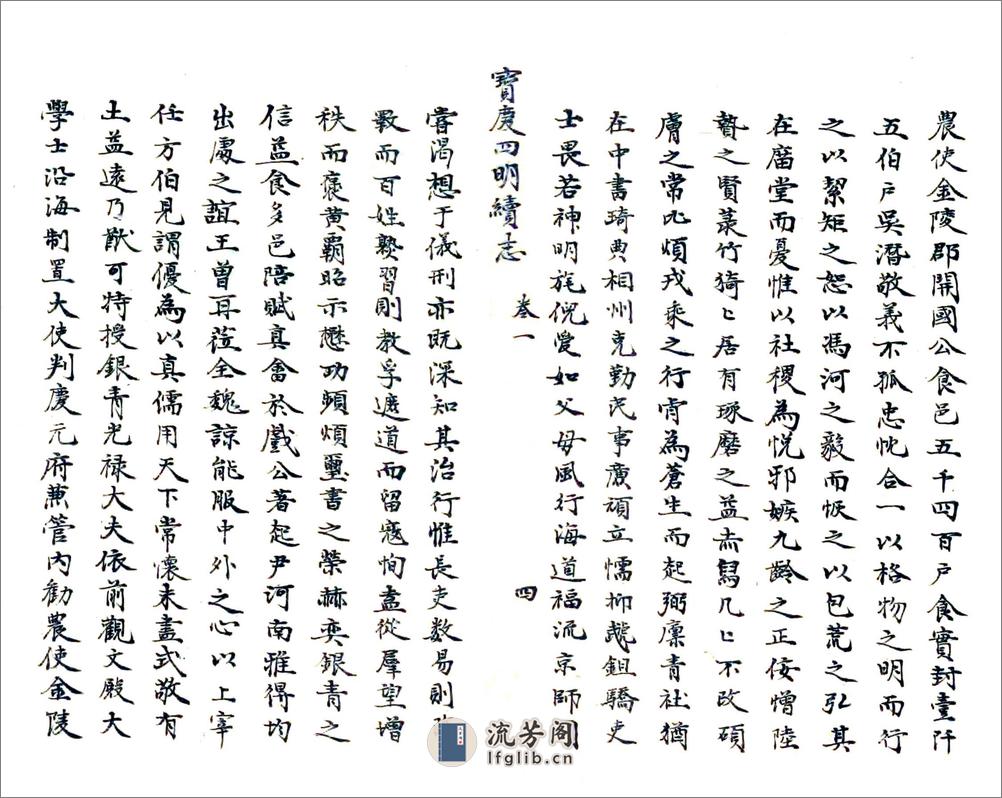 農使金陵郡開國公食邑五千四百戶食實封壹阡
五伯戶吳潛敬義不孤忠忱合一以格物之明而行
之以絜矩之恕以馮河之毅而恢之以包荒之弘其
在廟堂而憂惟以社稷為悅邪嫉九齡之正佞憎陸
贄之賢菉竹猗〻居有琢磨之益赤舄几〻不改碩
膚之常比煩戎乘之行宵為蒼生而起弼廩青社猶
在中書琦典相州克勤民事廣頑立懦抑彪鉏驕吏
士畏若神明旄倪愛如父母風行海道福流京師則
寶慶四明續志 卷一 四
嘗渴想于儀刑亦既深知其治行惟長吏數易則
斁而百姓孰習則教孚遮道而留寇恂盍從羣望增
秩而褒黃霸昭示懋功頻煩璽書之榮赫奕銀青之
信益食多邑陪賦真畬於戲公著起尹河南雅得均
出處之誼王曾再蒞全魏諒能服中外之心以上宰
任方伯見謂優為以真儒用天下常懷未盡式敬有
土益遠乃猷可特授銀青光祿大夫依前觀文殿大
學士沿海制置大使判慶元府兼管內勸農使金陵
流芳阁
lfglib.cn